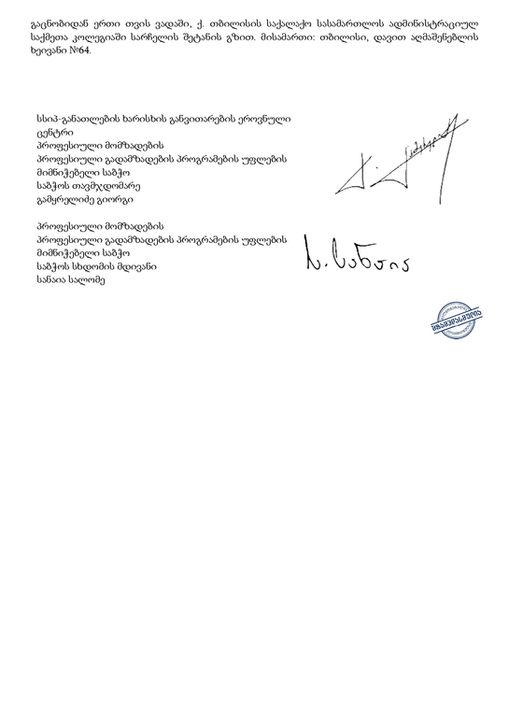 გაცნობიდან ერთი თვის ვადაში, ქ. თბილისის საქალაქო სასამართლოს ადმინისტრაციულ
საქმეთა კოლეგიაში სარჩელის შეტანის გზით. მისამართი: თბილისი, დავით აღმაშენებლის
ხეივანი №64.
სსიპ-განათლების ხარისხის განვითარების ეროვნული
ცენტრი
პროფესიული მომზადების
პროფესიული გადამზადების პროგრამების უფლების
მიმნიჭებელი საბჭო
საბჭოს თავმჯდომარე
გამყრელიძე გიორგი
პროფესიული მომზადების
პროფესიული გადამზადების პროგრამების უფლების
მიმნიჭებელი საბჭო
საბჭოს სხდომის მდივანი
სანაია სალომე
ს. სანაია